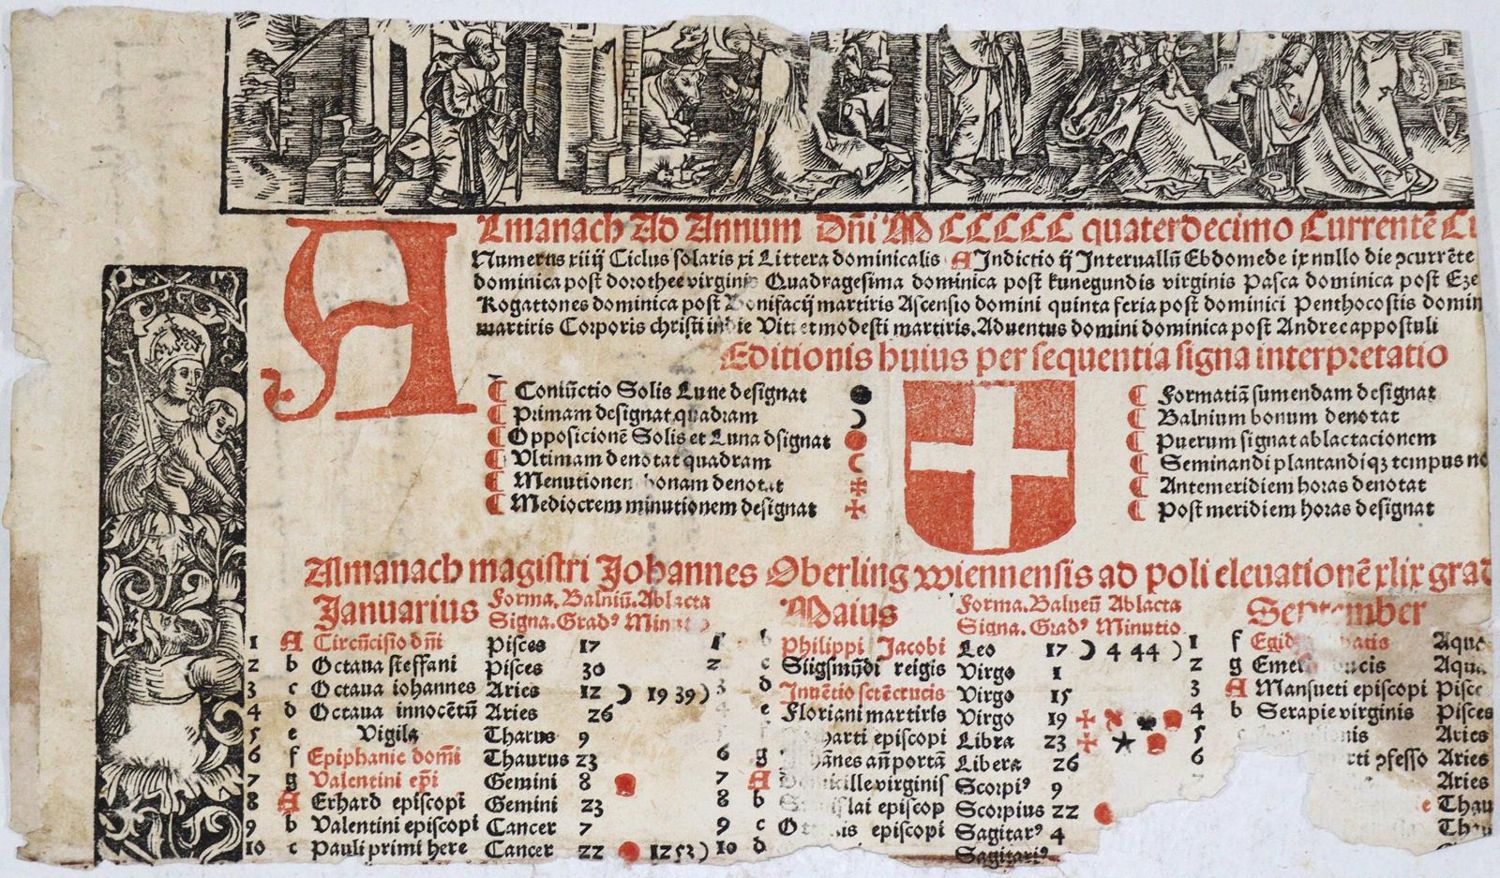 Almanach Ad Annum Dñi M CCCCC quaterdecimo Currentẽ
Numerus xiiij Ciclus solaris xi Littera dominicalis A Indictio ij Interuallũ Ebdomede ix nullo die ɔcurrẽte
dominica post dorothee virginis Quadragesima dominica post kunegundis virginis Pasca dominica post
Rogationes dominica post Bonifacij martiris Ascensio domini quinta feria post dominici Penthocostis
martiris Corporis christi in die Viti et modesti martiris. Aduentus domini dominica post Andree appostuli
Editionis huius per sequentia signa interpretatio
Coniũctio Solis Lune designat
Primam designat quadram
Opposicionẽ Solis et Luna dsignat
Vltimam denotat quadram
Menutionem bonam denotat
Mediocrem minutionem designat
Formatiã sumendam designat
Balnium bonum denotat
Puerum signat ablactacionem
Seminandi plantandiqꝫ tempus
Antemeridiem horas denotat
Post meridiem horas designat
Almanach magistri Johannes Oberling wiennensis ad poli eleuationẽ xlix
Januarius Forma. Balniũ. Ablacta
Signa. Gradꝰ Minutio
1 A Circũcisio dñi Pisces 17
2 b Octaua steffani Pisces 30
3 c Octaua iohannes Aries 12 ☽ 19 39)
4 d Octaua innocẽtũ Aries 26
5 e Vigila Tharus 9
6 f Epiphanie domĩ Thaurus 23
7 g Valentini epĩ Gemini 8
8 A Erhard episcopi Gemini 23
9 b Valentini episcopi Cancer 7
10 c Pauli primi here Cancer 22 1253)
Maius Forma. Balneũ Ablacta
Signa. Gradꝰ Minutio
1 b Philippi Jacobi Leo 17 ☽ 4 44 )
2 c Siigsmũdi reigis Virgo 1
3 d Inuẽtio sctẽ crucis Virgo 15
4 e Floriani martiris Virgo 19
episcopi Libra 23
6 g Johãnes añ portã Libera 26
7 A virginis Scorpiꝰ 9
8 b episcop Scorpius 22
9 c episcopi Sagitarꝰ 4
10 d Sagitariꝰ
September
1 f
2 g
3 A Mansueti episcopi
4 b Serapie virginis Pisces
5 Aries
6 ɔfesso Aries
Aries